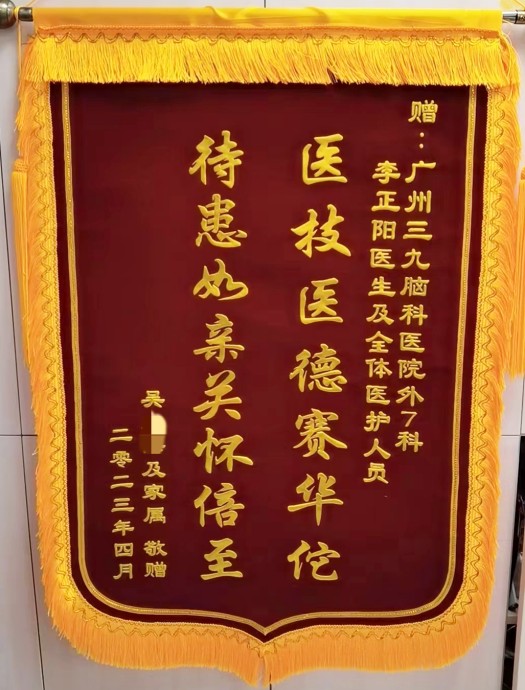 赠：广州三九脑科医院外7科
李正阳医生及全体医护人员
医技医德赛华佗
待患如亲关怀倍至
吴 及家属 敬赠
二零二三年四月